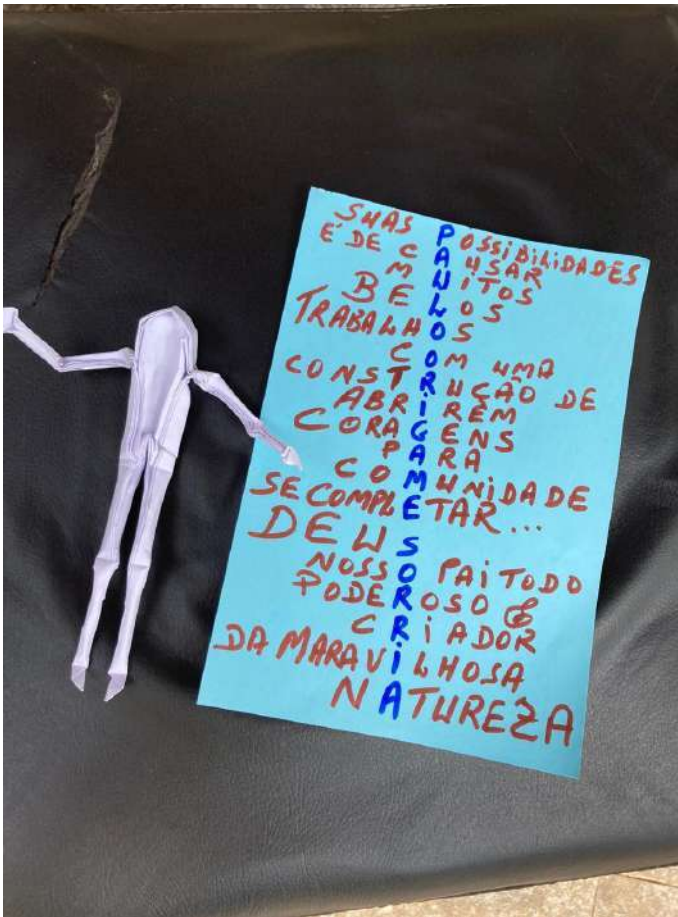 SUAS POSSIBILIDADES
É DE CAUSAR
MUITOS
BELOS
TRABALHOS
COM UMA
CONSTRUÇÃO DE
ABRIREM
CORAGENS
PARA
COMUNIDADE
SE COMPLETAR...
DEUS
NOSSO PAI TODO
PODEROSO &
CRIADOR
DA MARAVILHOSA
NATUREZA